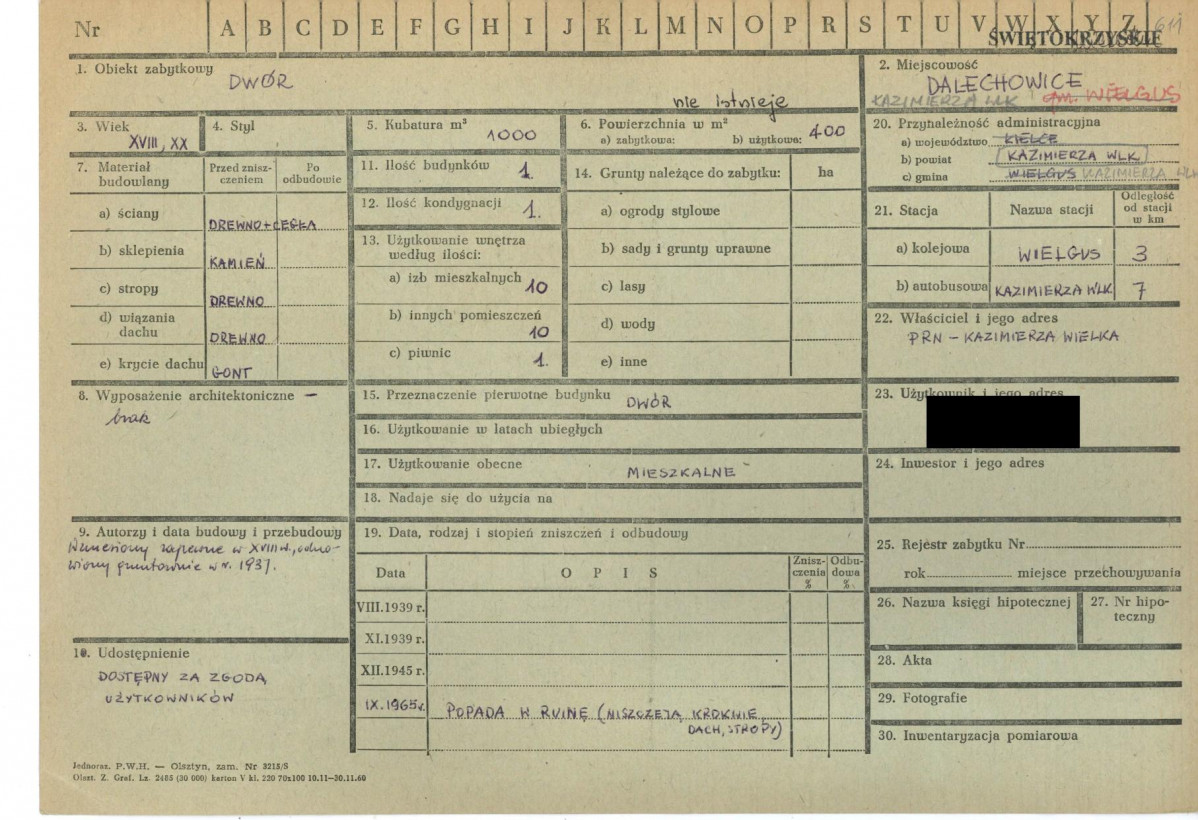 Nr A B C D E F G H I J K L M N O P R S T U V W X Y Z 611
ŚWIĘTOKRZYSKIE
1. Obiekt zabytkowy
DWÓR
nie istnieje
2. Miejscowość
DALECHOWICE
KAZIMIERZA WLK gm. WIELGUS
3. Wiek
XVIII, XX
4. Styl
5. Kubatura m³
1000
6. Powierzchnia w m²
a) zabytkowa: b) użytkowa: 400
7. Materiał budowlany
Przed zniszczeniem
Po odbudowie
a) ściany DREWNO+CEGŁA
b) sklepienia KAMIEŃ
c) stropy DREWNO
d) wiązania dachu DREWNO
e) krycie dachu GONT
8. Wyposażenie architektoniczne –
brak
9. Autorzy i data budowy i przebudowy
Wzniesiony zapewne w XVIII w., odno-
wiony gruntownie w r. 1937.
10. Udostępnienie
DOSTĘPNY ZA ZGODĄ
UŻYTKOWNIKÓW
11. Ilość budynków 1.
12. Ilość kondygnacji 1.
13. Użytkowanie wnętrza
według ilości:
a) izb mieszkalnych 10
b) innych pomieszczeń 10
c) piwnic 1.
14. Grunty należące do zabytku: ha
a) ogrody stylowe
b) sady i grunty uprawne
c) lasy
d) wody
e) inne
15. Przeznaczenie pierwotne budynku DWÓR
16. Użytkowanie w latach ubiegłych
17. Użytkowanie obecne MIESZKALNE
18. Nadaje się do użycia na
19. Data, rodzaj i stopień zniszczeń i odbudowy
Data OPIS Zniszczenia % Odbudowa %
VIII.1939 r.
XI.1939 r.
XII.1945 r.
IX.1965r. POPADA W RUINĘ (NISZCZEJĄ KROKWIE,
DACH, STROPY)
20. Przynależność administracyjna
a) województwo KIELCE
b) powiat KAZIMIERZA WLK.
c) gmina WIELGUS KAZIMIERZA WLK
21. Stacja
Nazwa stacji
Odległość
od stacji
w km
a) kolejowa WIELGUS 3
b) autobusowa KAZIMIERZA WLK 7
22. Właściciel i jego adres
PRN – KAZIMIERZA WIELKA
23. Użytkownik i jego adres
24. Inwestor i jego adres
25. Rejestr zabytku Nr
rok miejsce przechowywania
26. Nazwa księgi hipotecznej
27. Nr hipo-
teczny
28. Akta
29. Fotografie
30. Inwentaryzacja pomiarowa
Jednoraz. P.W.H. — Olsztyn, zam. Nr 3215/S
Olszt. Z. Graf. Lz. 2485 (30 000) karton V kl. 220 70x100 10.11—30.11.60